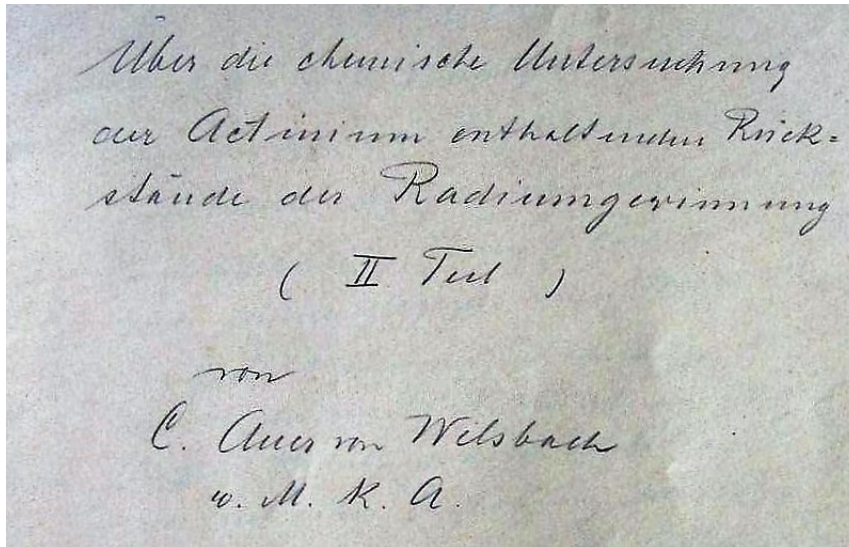 Über die chemische Untersuchung
der Actinium enthaltenden Rück=
stände der Radiumgewinnung
( II Teil )
von
C. Auer von Welsbach
w. M. K. A.